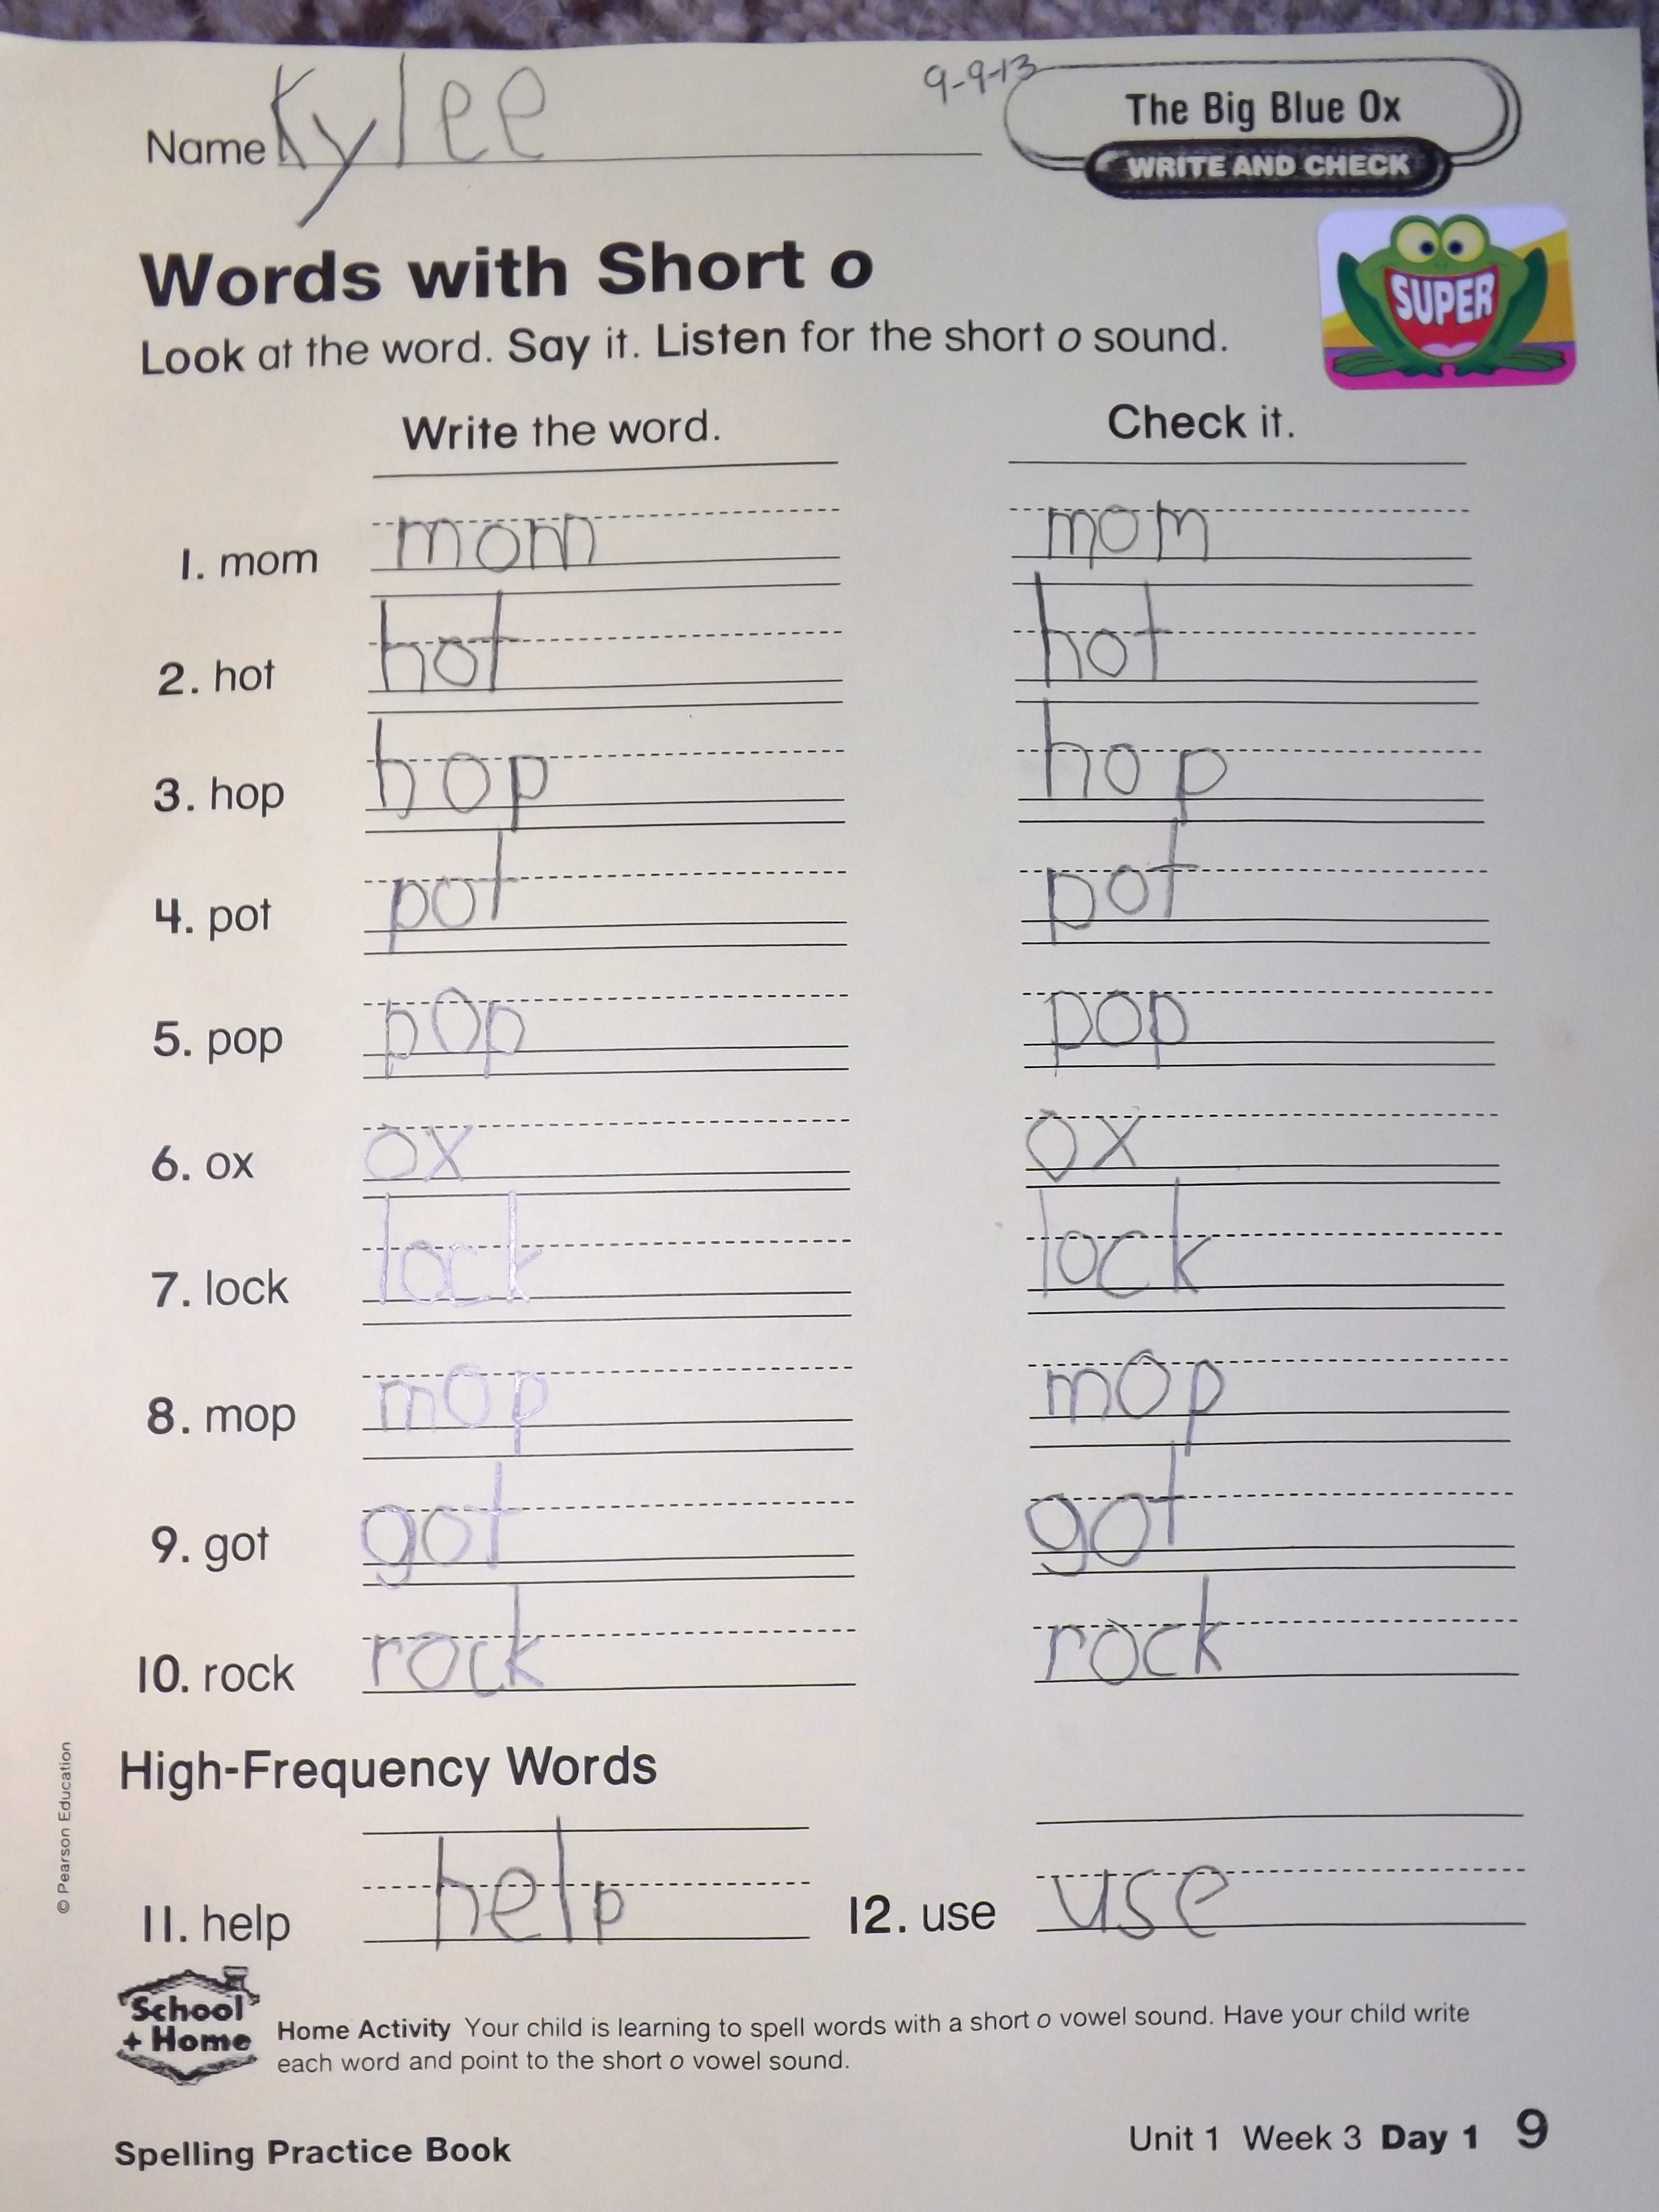 9-9-13
Name Kylee
The Big Blue Ox
WRITE AND CHECK
Words with Short o
SUPER
Look at the word. Say it. Listen for the short o sound.
Write the word. Check it.
1. mom mom mom
2. hot hot hot
3. hop hop hop
4. pot pot pot
5. pop pop pop
6. ox ox ox
7. lock lock lock
8. mop mop mop
9. got got got
10. rock rock rock
High-Frequency Words
11. help help 12. use use
© Pearson Education
School
+ Home
Home Activity Your child is learning to spell words with a short o vowel sound. Have your child write
each word and point to the short o vowel sound.
Spelling Practice Book Unit 1 Week 3 Day 1 9